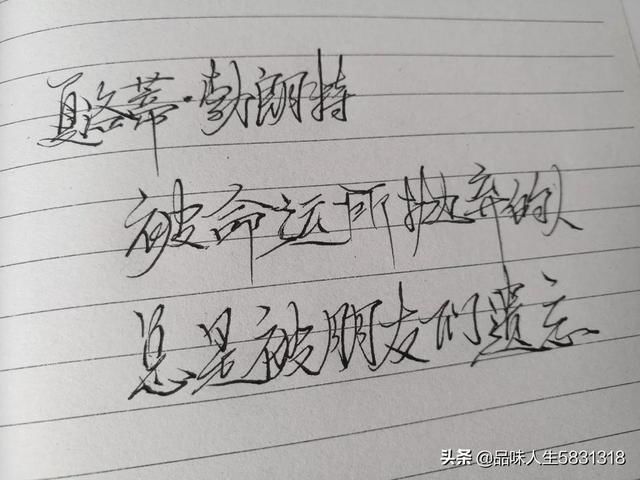 夏洛蒂·勃朗特
被命运所抛弃的人
总是被朋友们遗忘
头条 @品味人生5831318